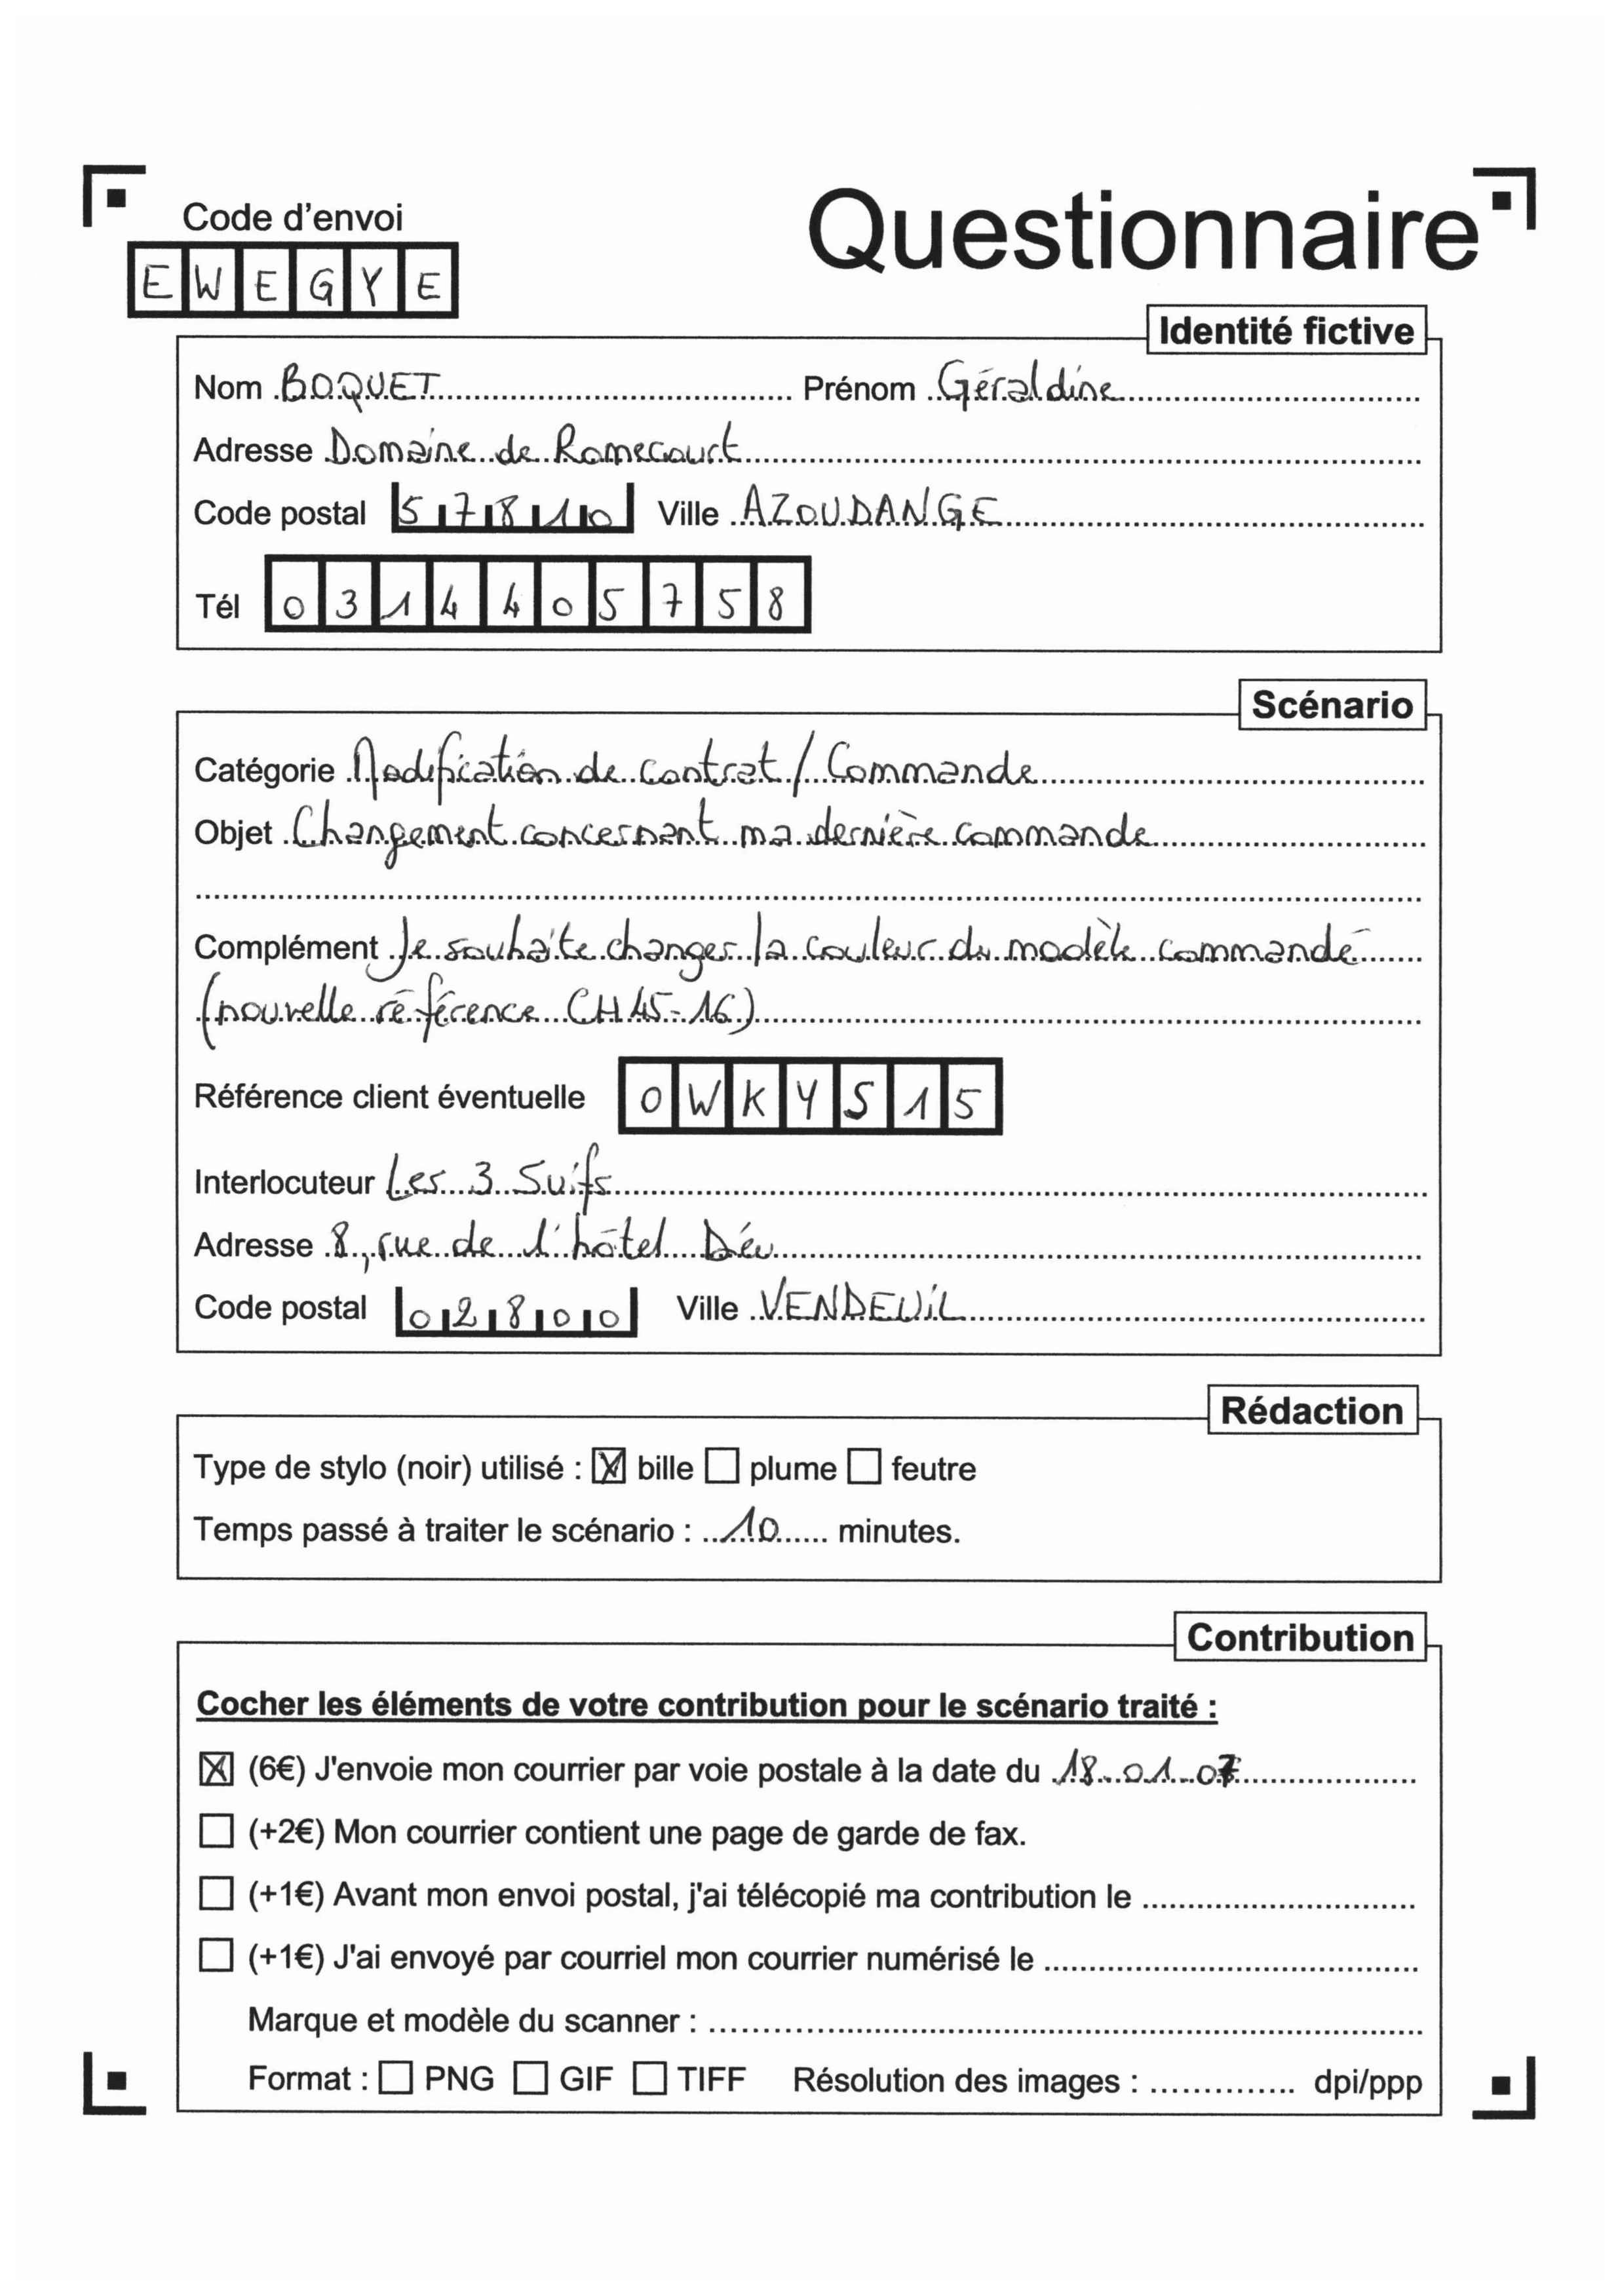 Code d'envoi
Questionnaire
EWEGYE
Identité fictive
Nom BOQUET Prénom Géraldine
Adresse Domaine de Romecourt
Code postal 57810 Ville AZOUDANGE
Tél 0314405758
Scénario
Catégorie Modification de contrat / Commande
Objet Changement concernant ma dernière commande
Complément Je souhaite changer la couleur du modèle commandé
(nouvelle référence CH45-16)
Référence client éventuelle OWKYS15
Interlocuteur Les 3 Suifs
Adresse 8, rue de l'hôtel Diéu
Code postal 02800 Ville VENDEUIL
Rédaction
Type de stylo (noir) utilisé : ☒ bille ☐ plume ☐ feutre
Temps passé à traiter le scénario : 10 minutes.
Contribution
Cocher les éléments de votre contribution pour le scénario traité :
☒ (6€) J'envoie mon courrier par voie postale à la date du 18.01.07
☐ (+2€) Mon courrier contient une page de garde de fax.
☐ (+1€) Avant mon envoi postal, j'ai télécopié ma contribution le
☐ (+1€) J'ai envoyé par courriel mon courrier numérisé le
Marque et modèle du scanner :
Format : ☐ PNG ☐ GIF ☐ TIFF Résolution des images : dpi/ppp